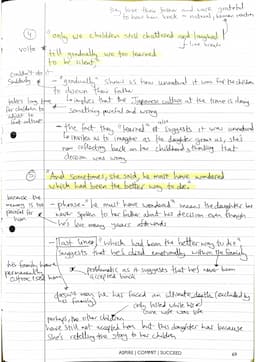 they love their father and were grateful
to have him back - natural, human reaction
④ "only we children still chattered and laughed
volta
till gradually we too learned
to be silent,"
couldn't do it
suddenly
- "gradually" shows us how unnatural it was for the children
to disown their father
takes long time
for children to
adjust to
implies that the Japanese culture at the time is doing
something painful and wrong
- The fact they "learned" it suggests it was unnatural
as the daughter grows up, she's
now reflecting back on her childhood & thinking that
decision was wrong
⑤ "And sometimes, she said, he must have wondered
which had been the better way to die."
because the
memory is too
painful for
him
- phrase "he must have wondered" means the daughter has
never spoken to her father about his decision even though
he's live many years afterwards
- [last line] "which had been the better way to die"
suggests that he's died emotionally within the family
his family have
permanently
problematic as it suggests that he's never been
accepted back
he has faced an ultimate death (excluded by
his family)
perhaps, the other children
have still not accepted him but this daughter has because
she's retelling the story to her children
ASPIRE | COMMIT | SUCCEED
69